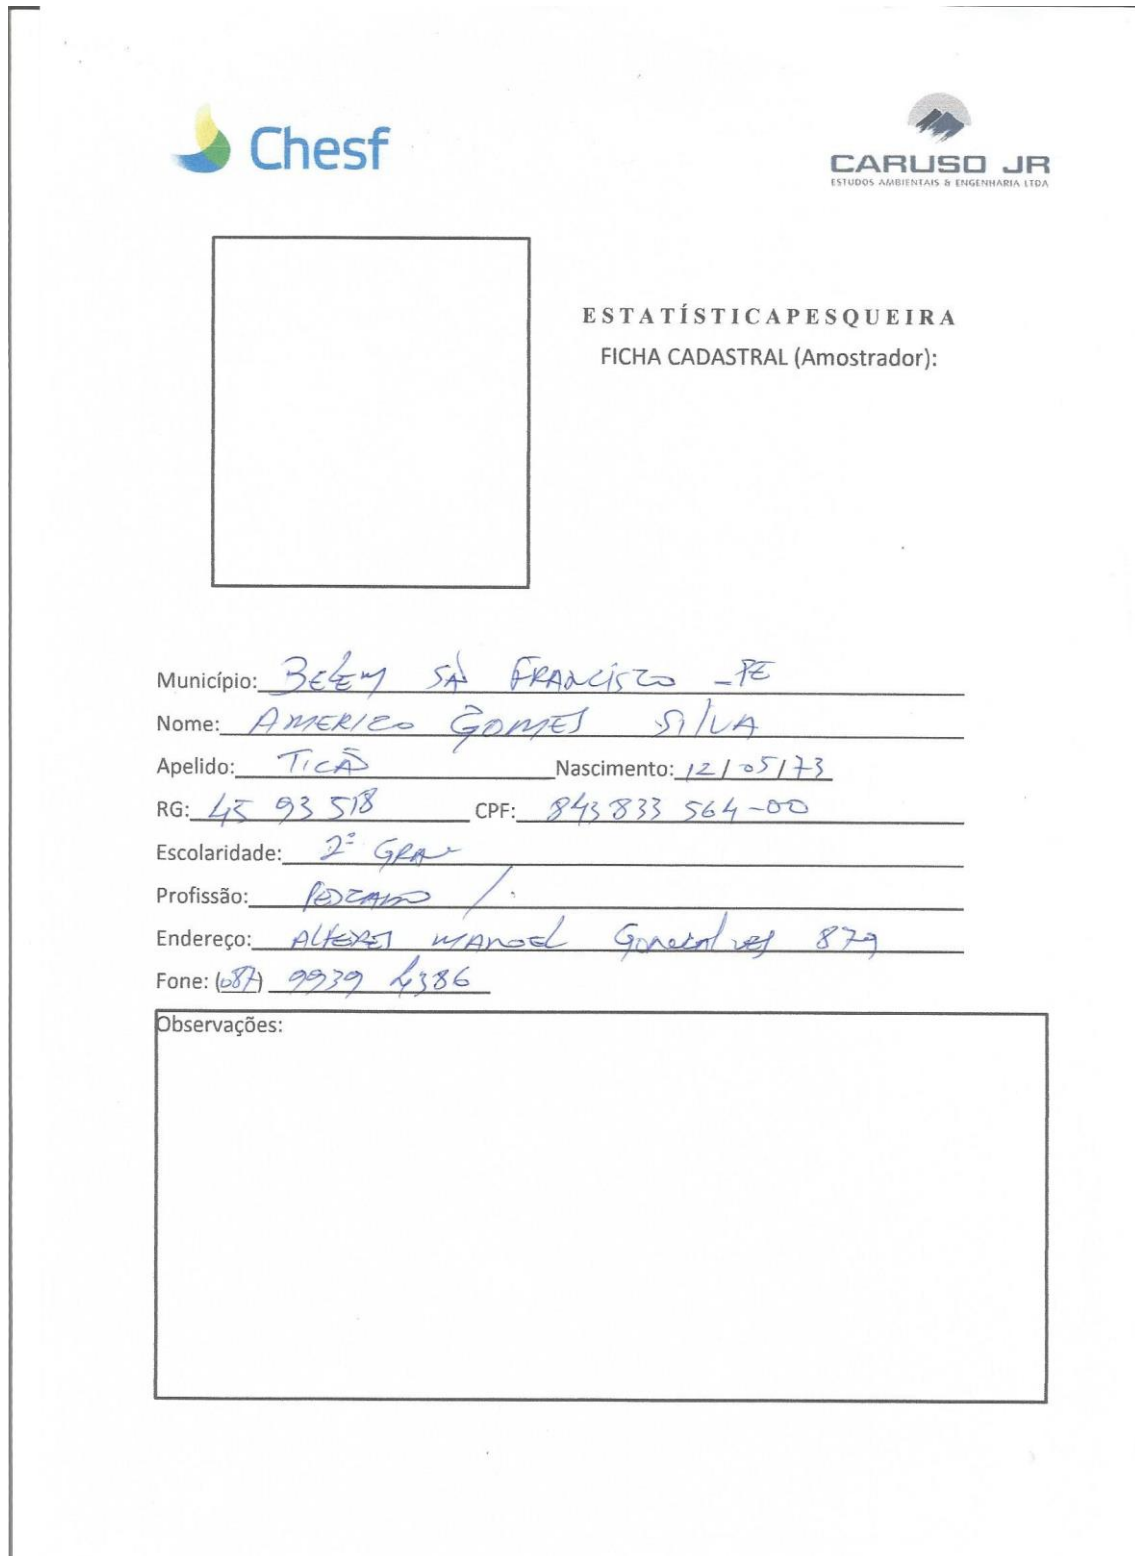 Chesf
CARUSO JR
ESTUDOS AMBIENTAIS & ENGENHARIA LTDA
ESTATÍSTICAPESQUEIRA
FICHA CADASTRAL (Amostrador):
Município: BELEM SÃ FRANCISCO - PE
Nome: AMERICO GOMES SILVA
Apelido: TICÃO Nascimento: 12/05/73
RG: 45 93 518 CPF: 843 833 564-00
Escolaridade: 2º GRAU
Profissão:
Endereço: ALFERES MANOEL Goncalves 879
Fone: (087) 9939 4386
Observações: